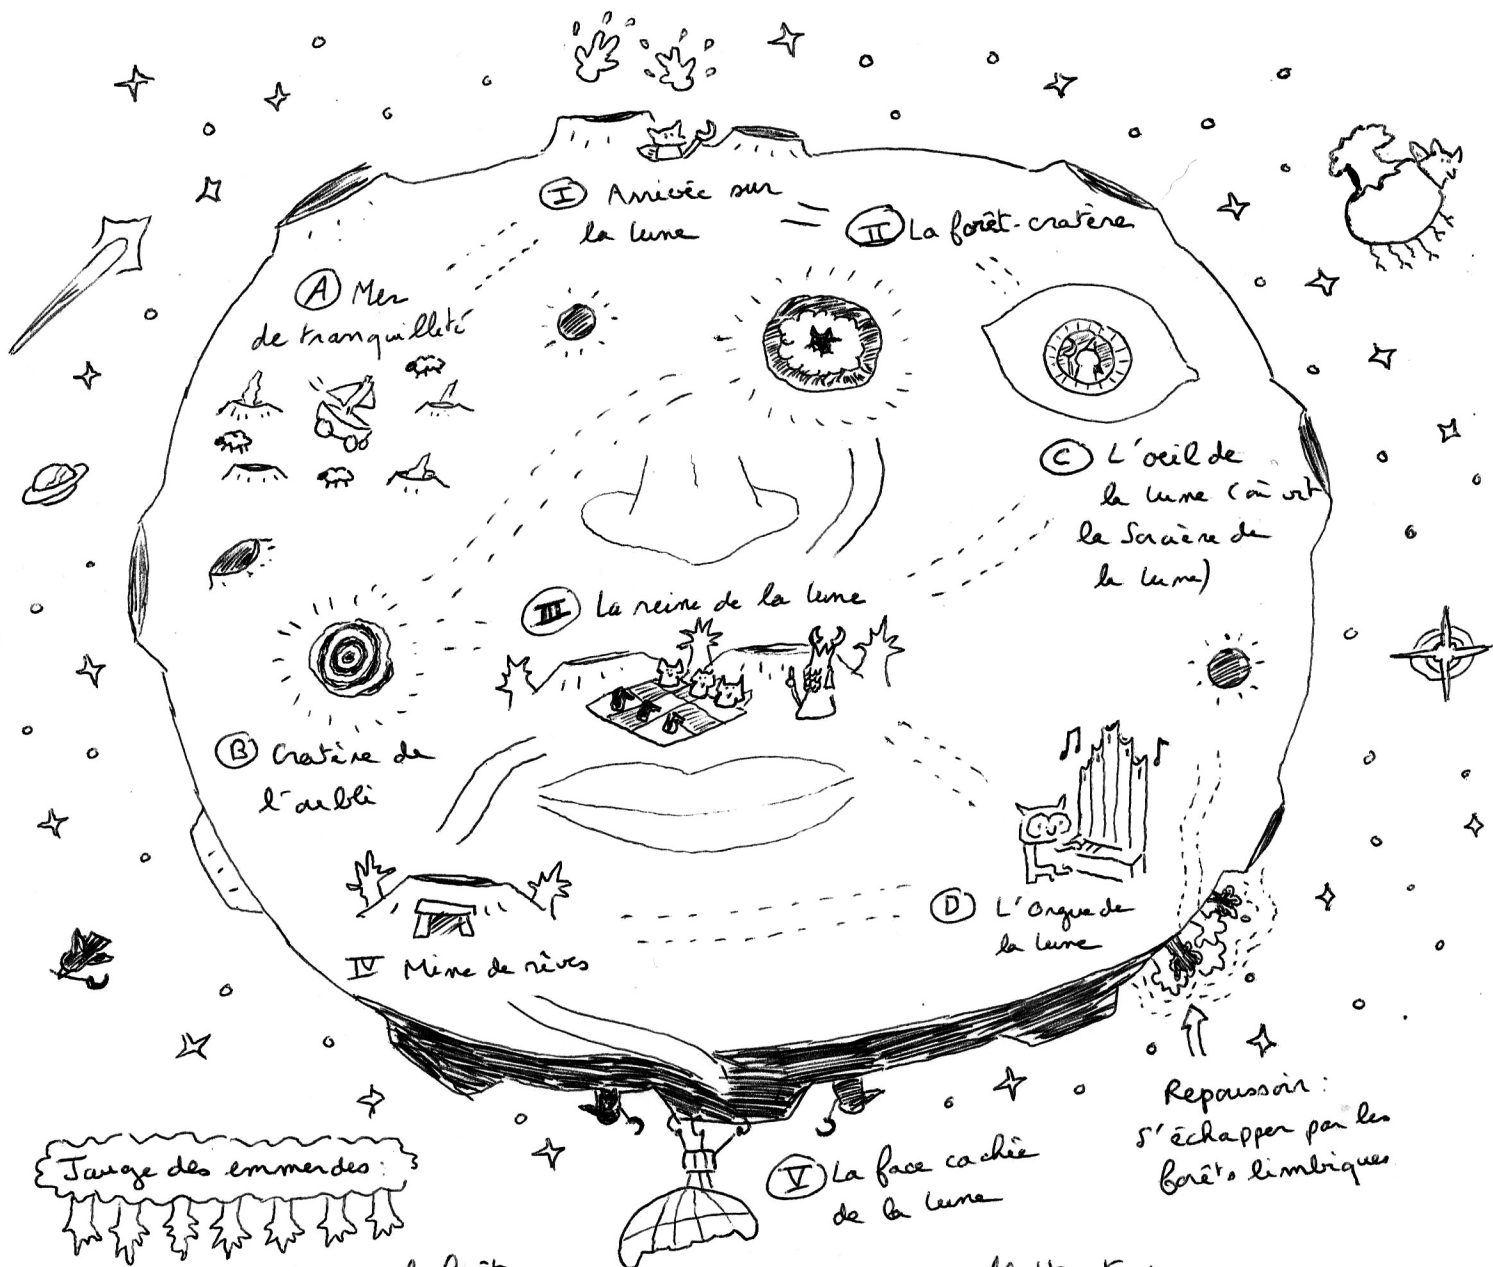 I Arrivée sur
la lune
II La forêt-cratère
A Mer
de tranquillité
C L'oeil de
la lune (où vit
la Sorcière de
la lune)
III La reine de la lune
B Cratère de
l'oubli
D L'Orgue de
la lune
IV Mine de rêves
Repoussoir :
s'échapper par les
forêts limbiques
V La face cachée
de la lune
Jauge des emmerdes :